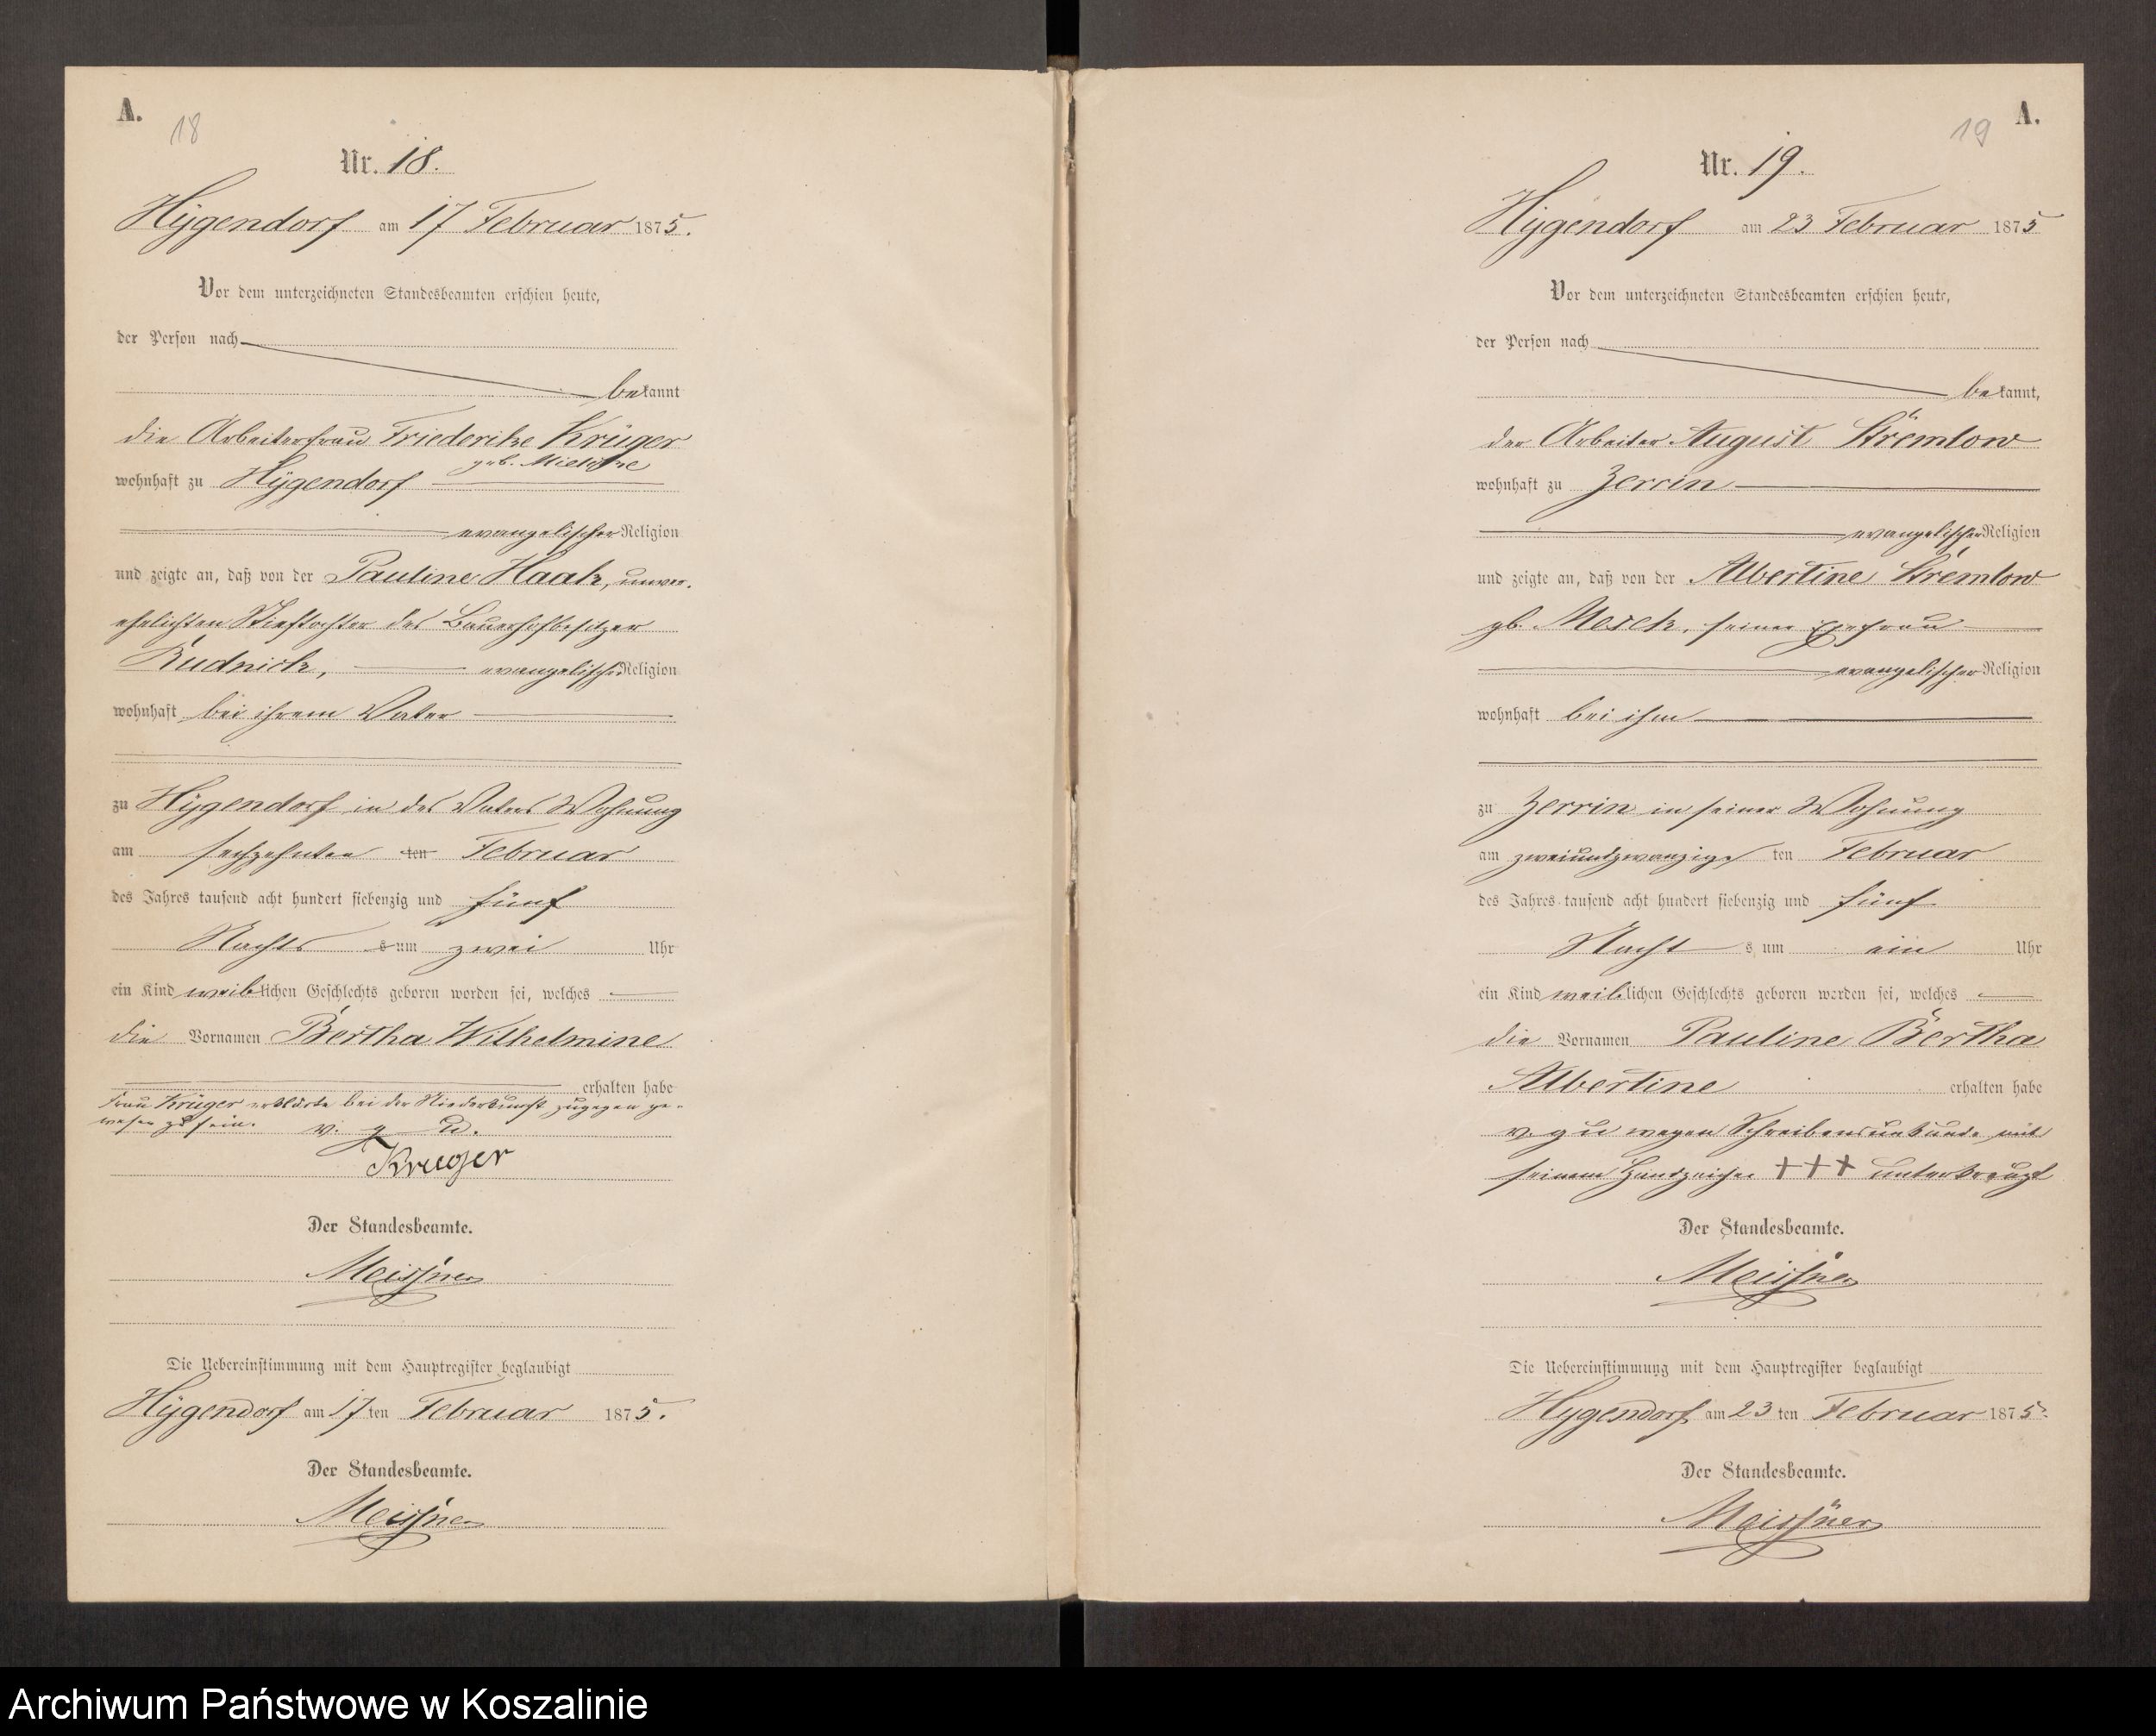 A.
18
Nr. 18.
Hygendorf am 17 Februar 1875.
Vor dem unterzeichneten Standesbeamten erschien heute,
der Person nach
bekannt
die Arbeiterfrau Friederike Krüger
geb.
wohnhaft zu Hygendorf
evangelischer Religion
und zeigte an, daß von der Pauline Haak, unver-
ehelichten Stieftochter des Bauerhofbesitzer
Rudnick, evangelischer Religion
wohnhaft bei ihrem Vater
zu Hygendorf in des Vaters Wohnung
am sechzehnten ten Februar
des Jahres tausend acht hundert siebenzig und fünf
Nachts s um zwei Uhr
ein Kind weiblichen Geschlechts geboren worden sei, welches
die Vornamen Bertha Wilhelmine
erhalten habe
Frau Krüger erklärte bei der Niederkunft zugegen ge-
wesen zu sein. v. g. u.
Krueger
Der Standesbeamte.
Meissner
Die Uebereinstimmung mit dem Hauptregister beglaubigt
Hygendorf am 17 ten Februar 1875.
Der Standesbeamte.
Meissner
A.
19
Nr. 19.
Hygendorf am 23 Februar 1875
Vor dem unterzeichneten Standesbeamten erschien heute,
der Person nach
bekannt,
der Arbeiter August Stremlow
wohnhaft zu Zerrin
evangelischer Religion
und zeigte an, daß von der Albertine Stremlow
gb. Mesck, seiner Ehefrau
evangelischer Religion
wohnhaft bei ihm
zu Zerrin in seiner Wohnung
am zweiundzwanzigs ten Februar
des Jahres tausend acht hundert siebenzig und fünf
Nacht s um ein Uhr
ein Kind weiblichen Geschlechts geboren worden sei, welches
die Vornamen Pauline Bertha
Albertine erhalten habe
v. g u wegen Schreibensunkunde mit
seinem Handzeichen +++ unterkreuzt
Der Standesbeamte.
Meissner
Die Uebereinstimmung mit dem Hauptregister beglaubigt
Hygendorf am 23 ten Februar 1875.
Der Standesbeamte.
Meissner
Archiwum Państwowe w Koszalinie